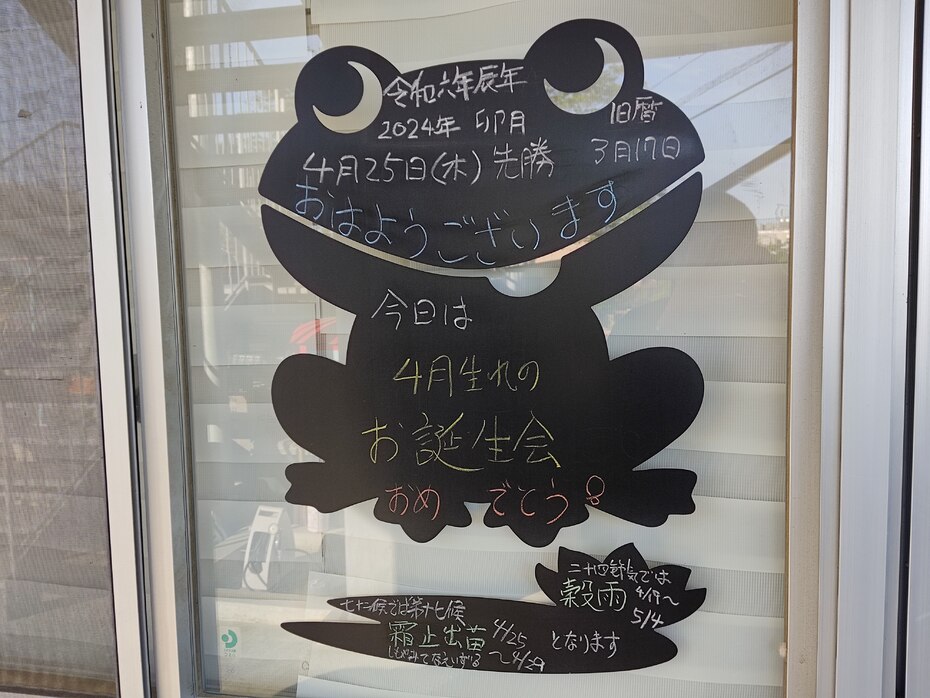 令和六年辰年
2024年 卯月
旧暦
3月17日
4月25日(木)先勝
おはようございます
今日は
4月生れの
お誕生会
おめでとう!
二十四節気では
穀雨 4/19〜
5/4
七十二候では第十七候
霜止出苗 4/25
しもやみてなえいずる 〜4/29
となります